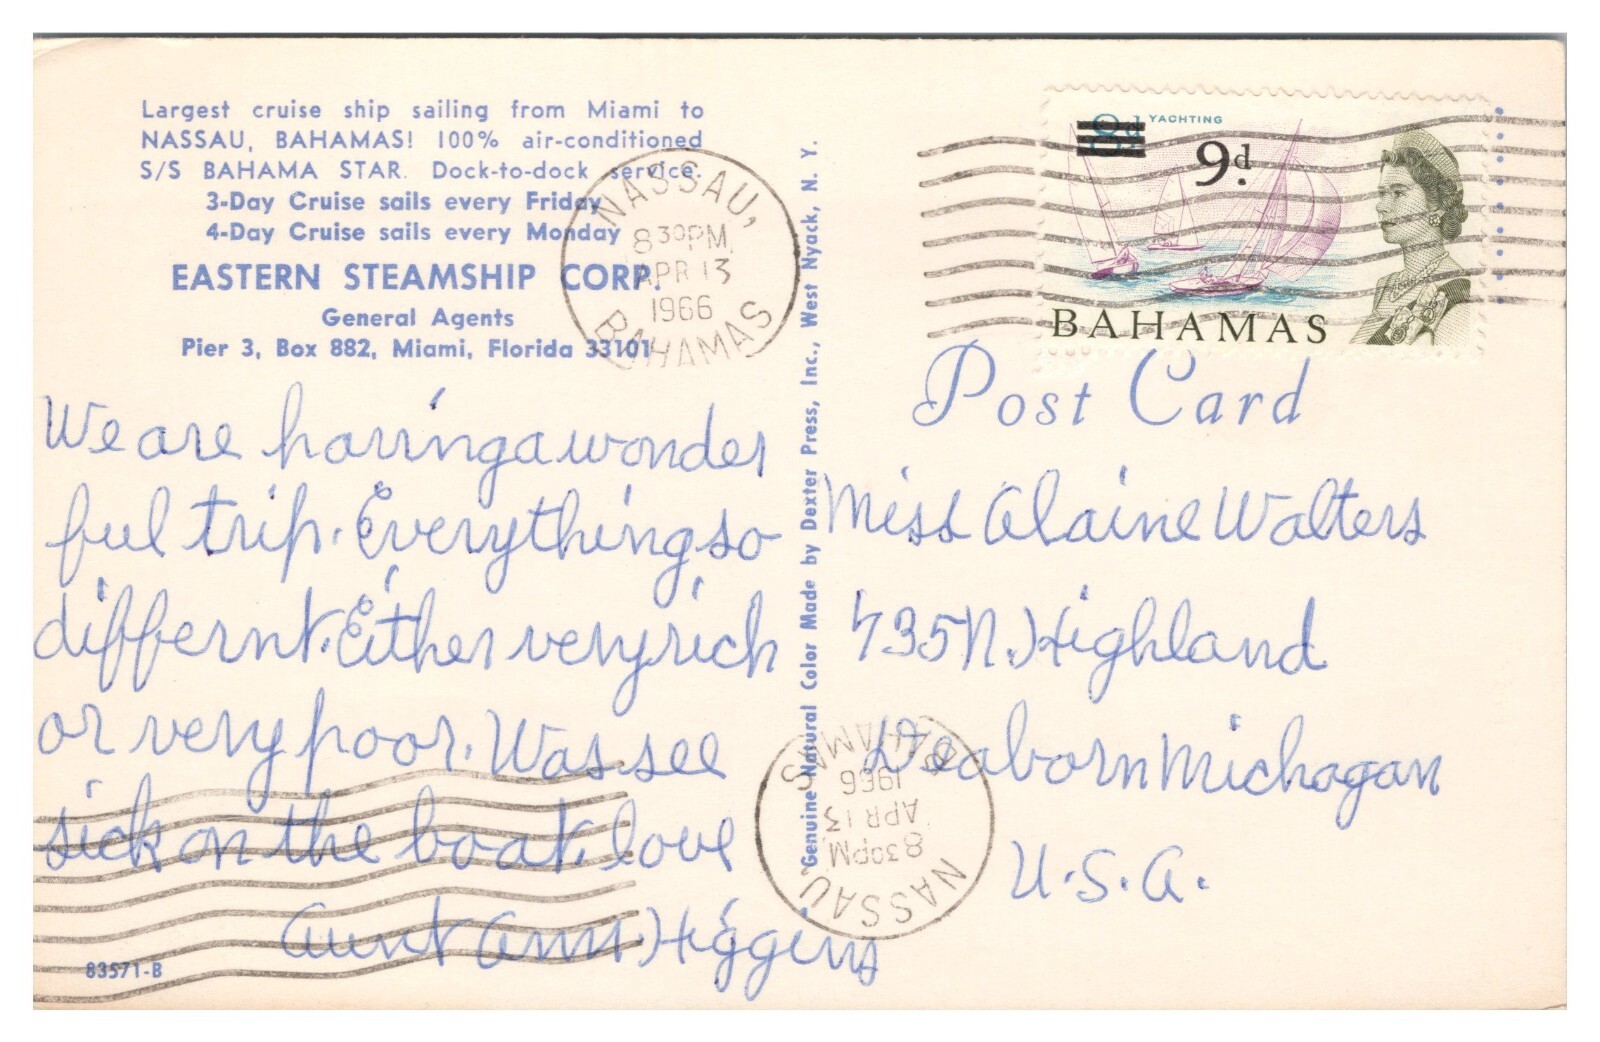 Largest cruise ship sailing from Miami to
NASSAU, BAHAMAS! 100% air-conditioned
S/S BAHAMA STAR. Dock-to-dock service.
3-Day Cruise sails every Friday
4-Day Cruise sails every Monday
EASTERN STEAMSHIP CORP.
General Agents
Pier 3, Box 882, Miami, Florida 33101
NASSAU,
830PM
APR 13
1966
BAHAMAS
We are having a wonder
ful trip. Everything so
differnt. Either very rich
or very poor. Was see
sick on the boat. love
Aunt Ann. Higgins
83571-B
"Genuine Natural Color Made by Dexter Press, Inc., West Nyack, N. Y.
8d YACHTING
9d.
BAHAMAS
Post Card
Miss Alaine Walters
735 N. Highland
Deaborn Michagan
U.S.A.
NASSAU
830PM
APR 13
1966
BAHAMAS